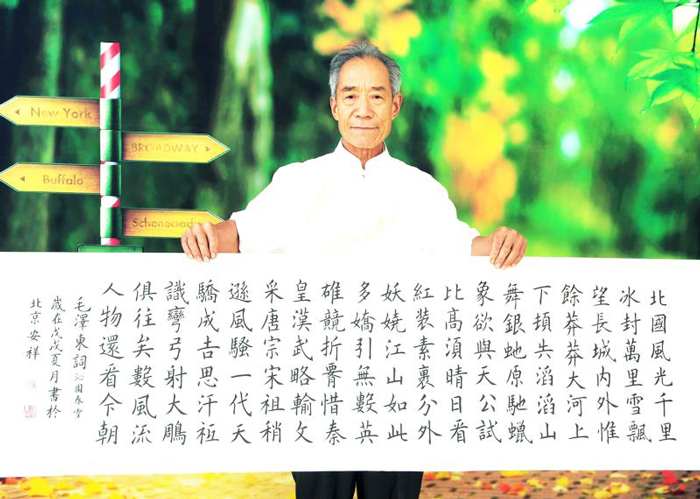 New York
BROADWAY
Buffalo
北國風光千里
冰封萬里雪飄
望長城內外惟
餘莽莽大河上
下頓失滔滔山
舞銀虵原馳蠟
象欲與天公試
比高須晴日看
紅装素裹分外
妖嬈江山如此
多嬌引無數英
雄競折腰惜秦
皇漢武略輸文
采唐宗宋祖稍
遜風騷一代天
驕成吉思汗祗
識彎弓射大鵰
俱往矣數風流
人物還看今朝
毛澤東詞 沁園春雪
歲在戊戌夏月書於
北京安祥